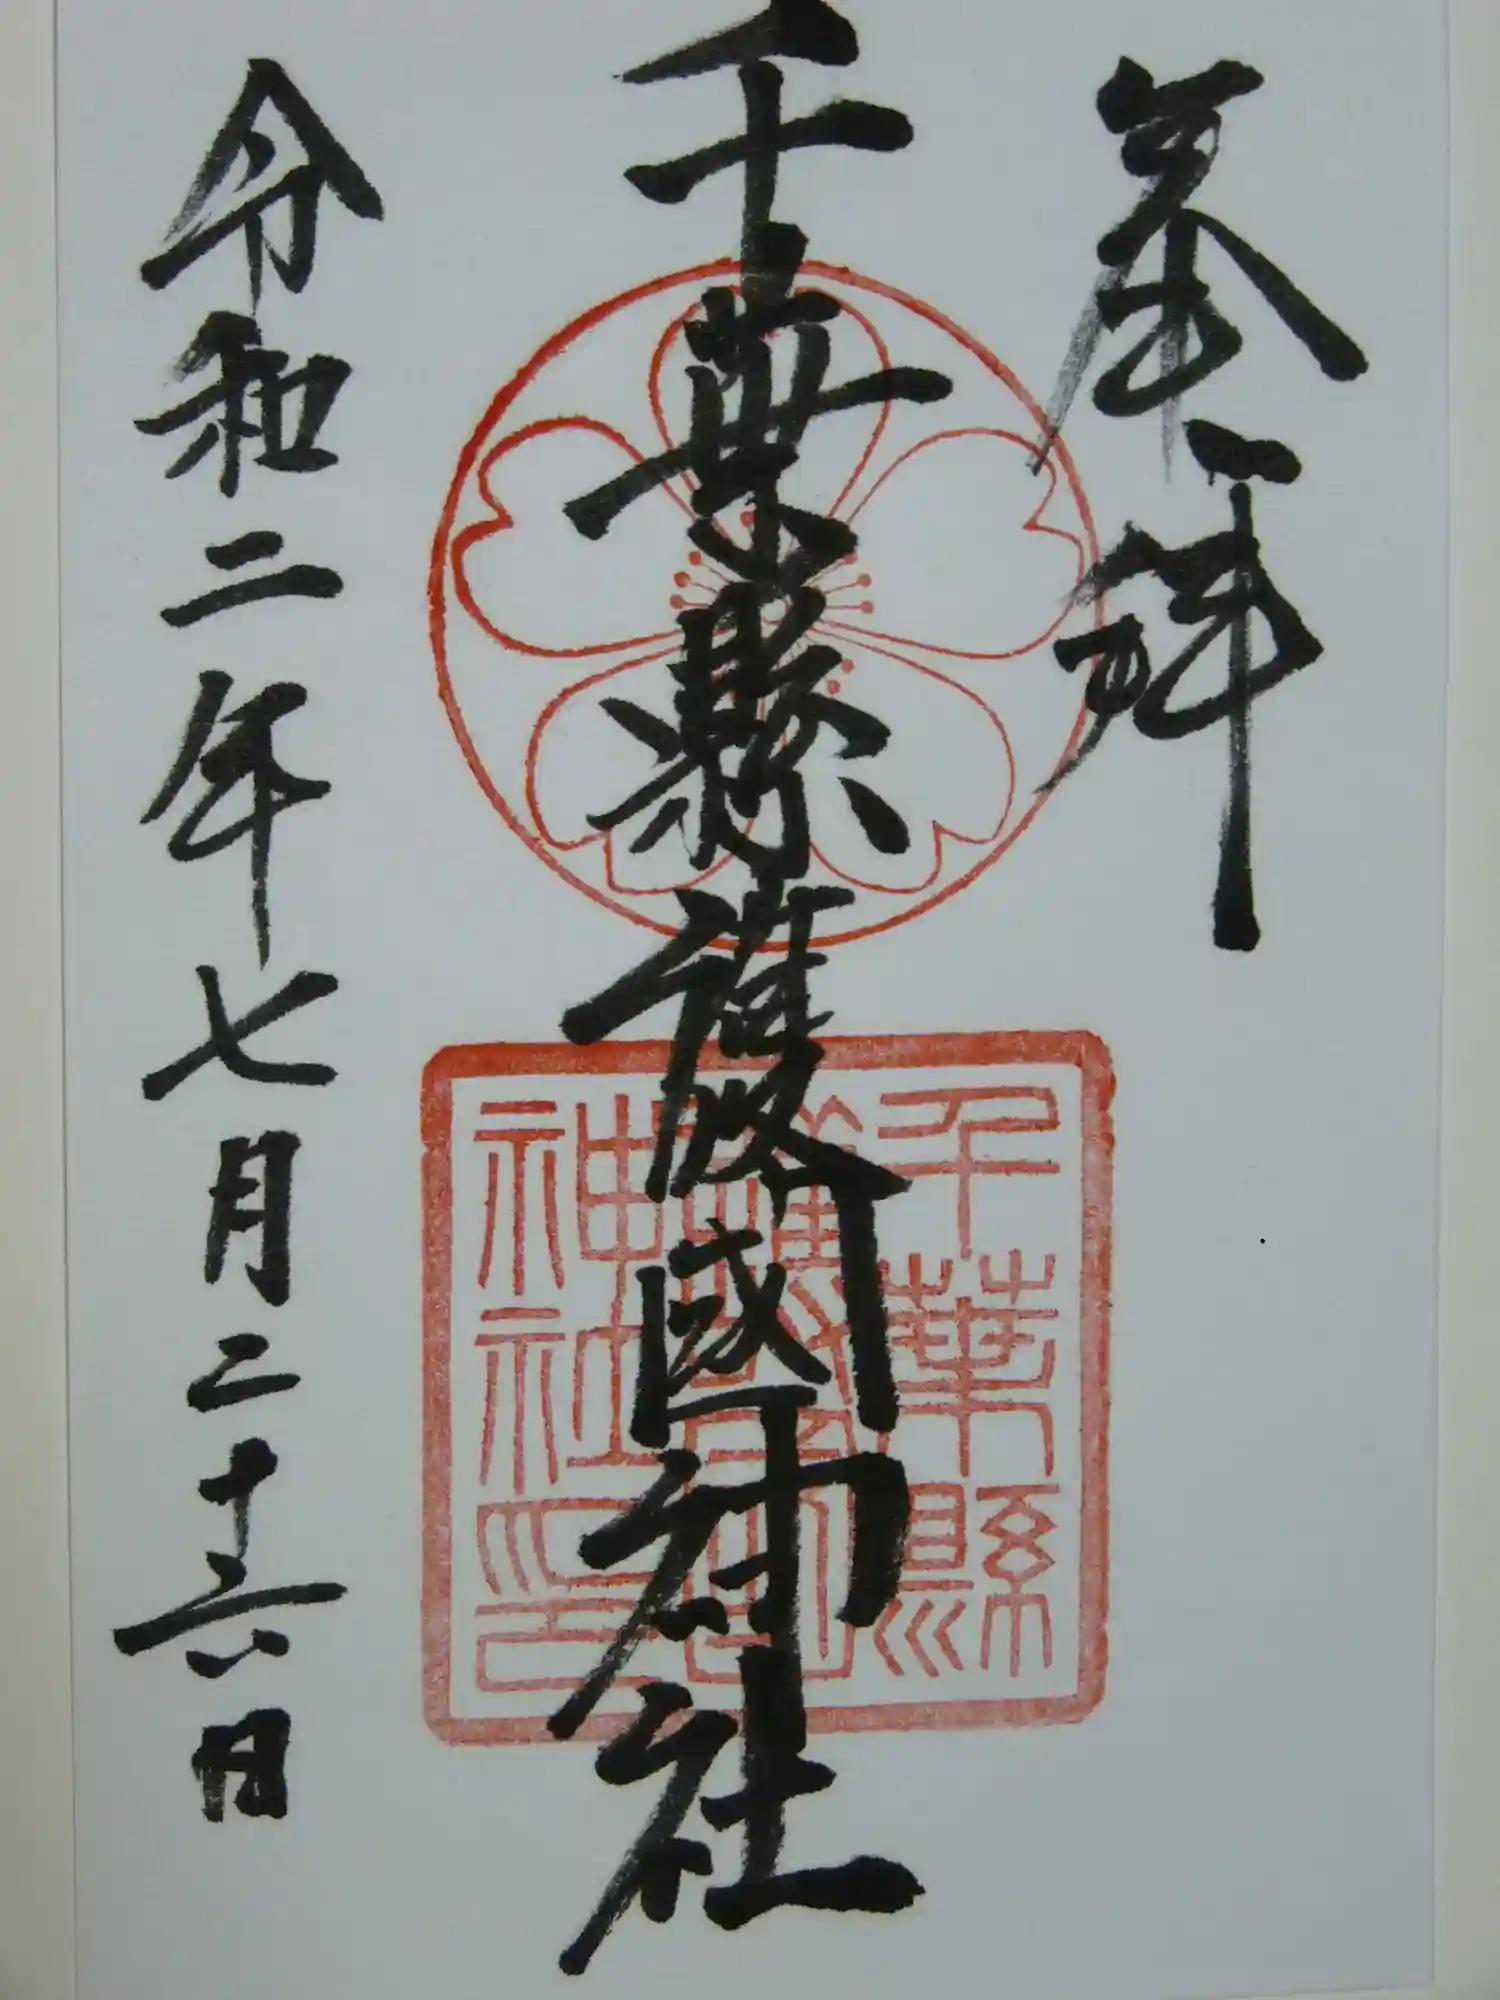 参拝
千葉縣護國神社
令和二年七月二十六日
千葉縣
護國
神社印